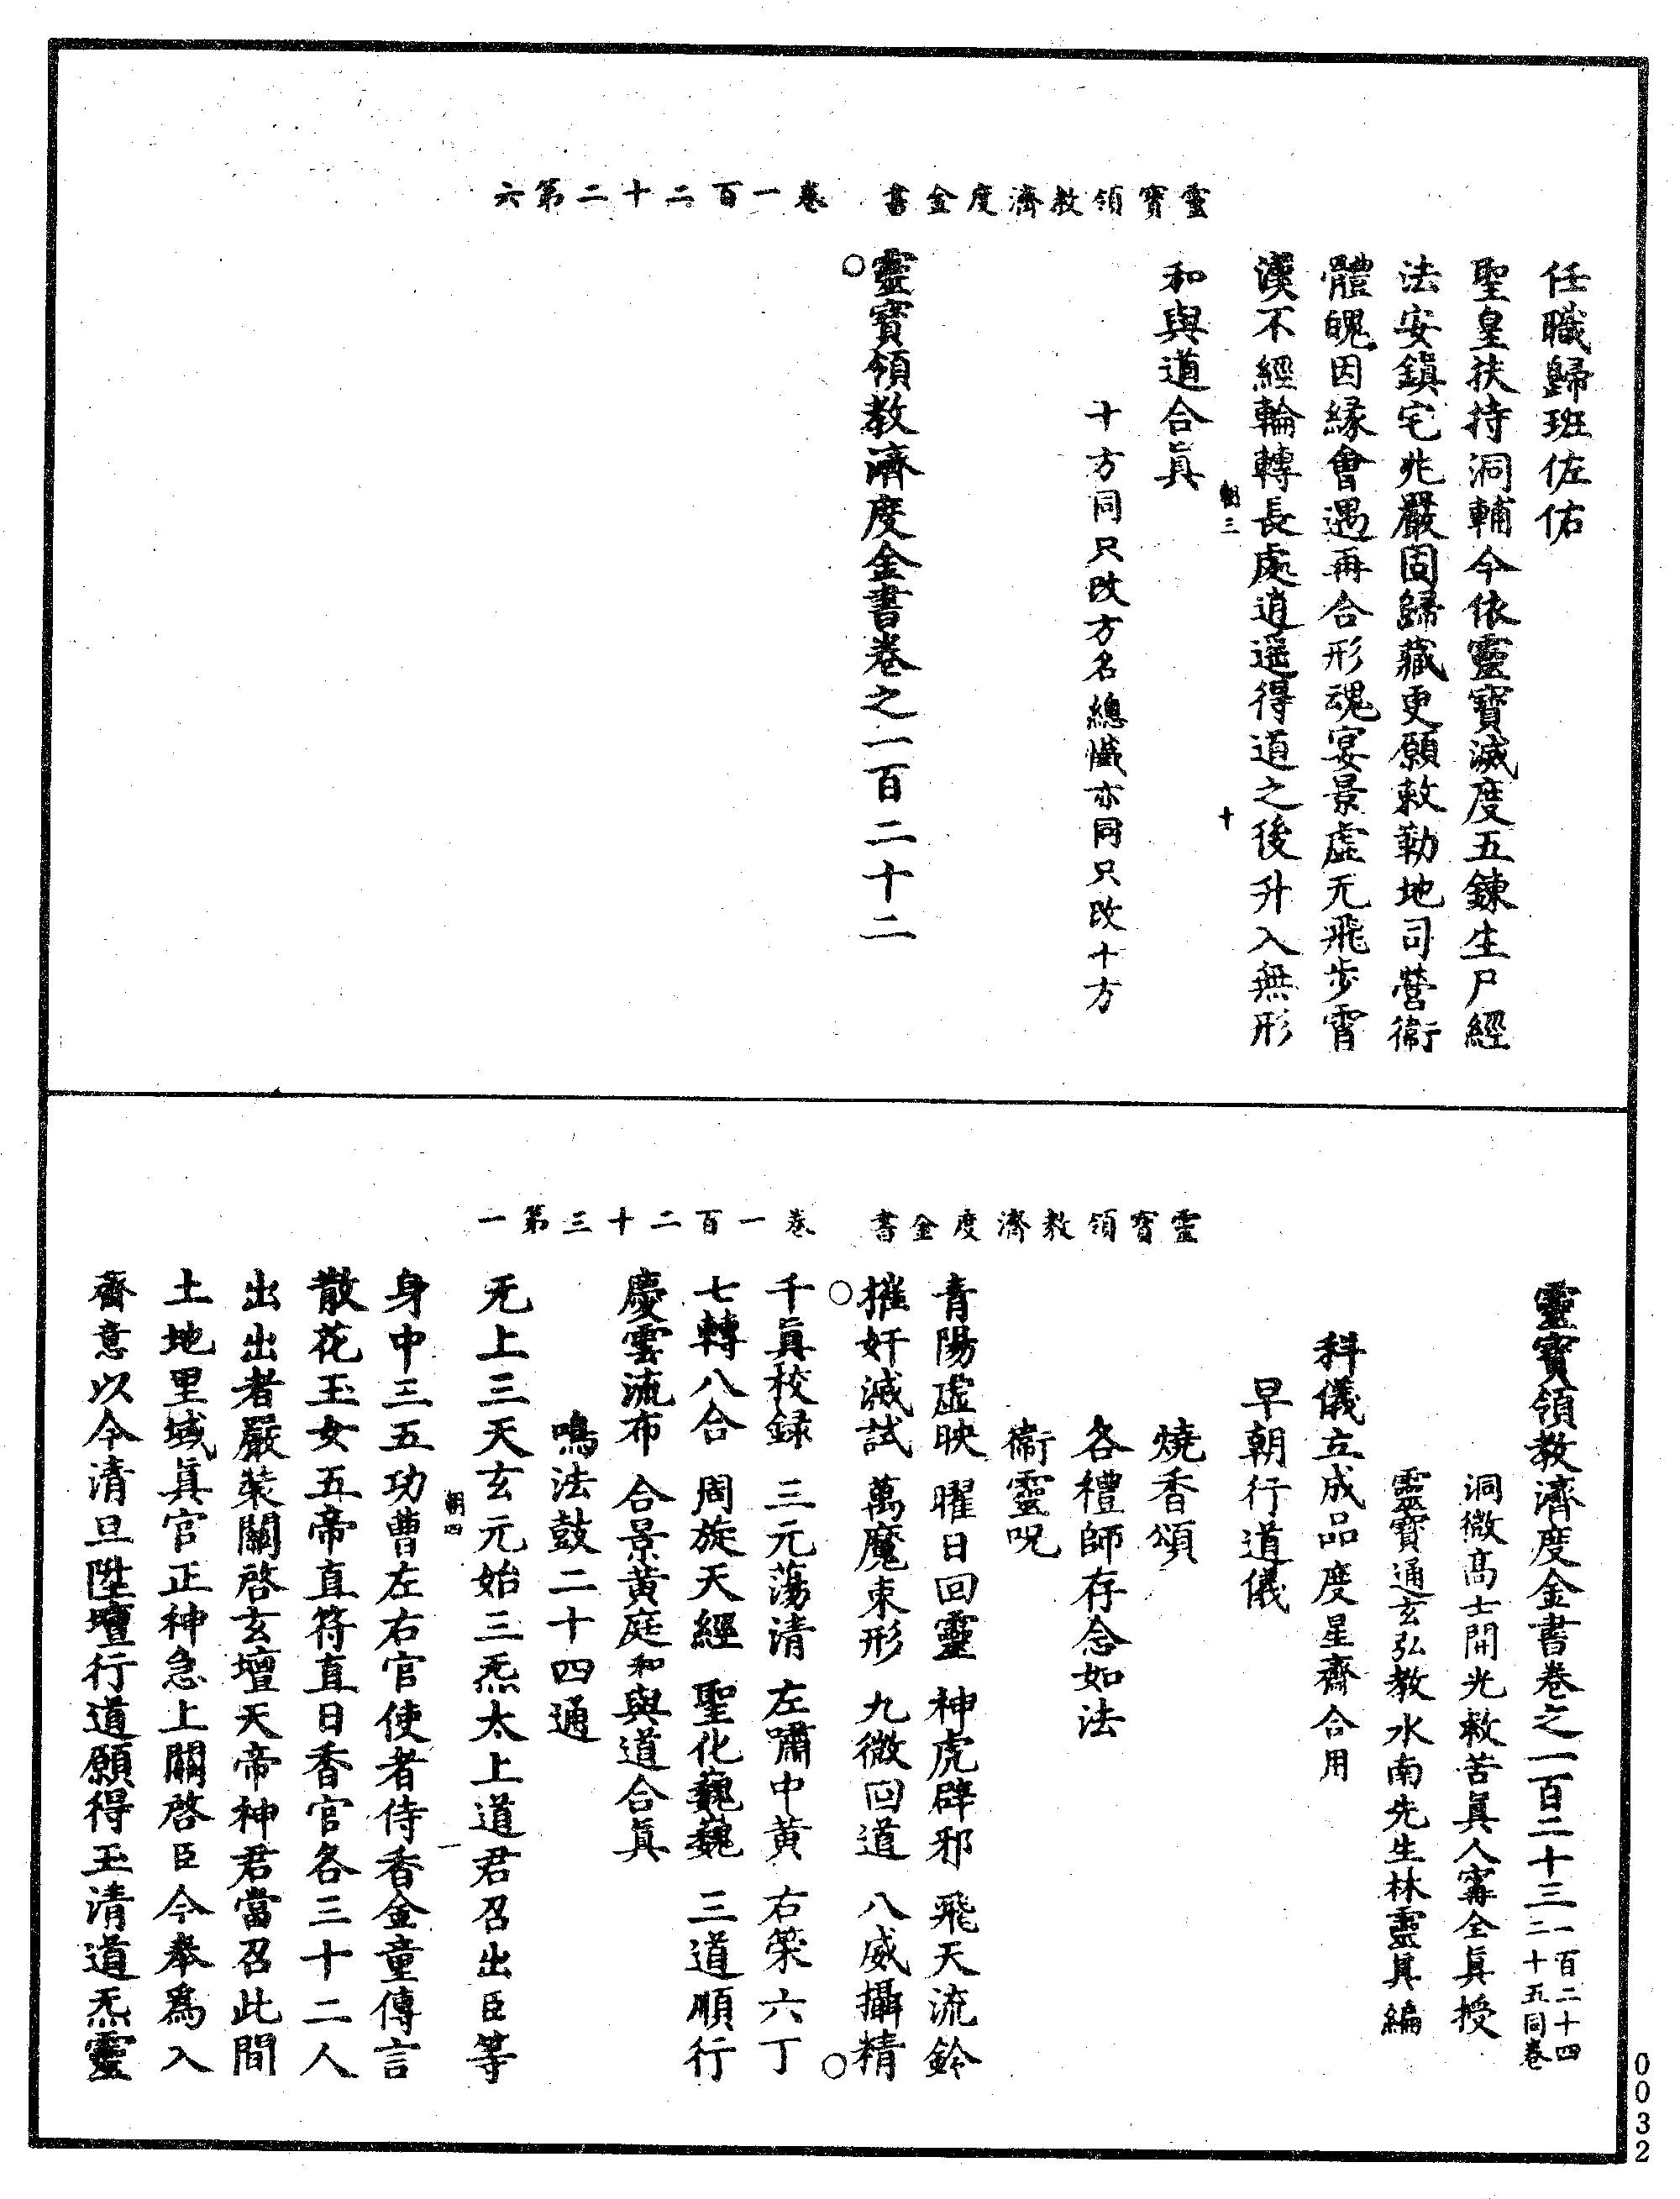 靈寶領教濟度金書　卷一百二十二第六
任職歸班佐佑
聖皇扶持洞輔今依靈寶滅度五鍊生尸經
法安鎮宅兆嚴固歸藏更願敕勒地司營衞
體魄因緣會遇再合形魂宴景虛无飛步霄
漢不經輪轉長處逍遥得道之後升入無形
朝三　十
和與道合眞
十方同只改方名總懺亦同只改十方
靈寶領教濟度金書卷之一百二十二
靈寶領教濟度金書　卷一百二十三第一
靈寶領教濟度金書卷之一百二十三一百二十四二十五同卷
洞微高士開光救苦眞人甯全眞授
靈寶通玄弘教水南先生林靈眞編
科儀立成品度星齋合用
早朝行道儀
燒香頌
各禮師存念如法
衞靈呪
青陽虛映　曜日回靈　神虎辟邪　飛天流鈴
摧奸滅試　萬魔束形　九微回道　八威攝精
千眞校録　三元蕩清　左嘯中黄　右策六丁
七轉八合　周旋天經　聖化巍巍　三道順行
慶雲流布　合景黄庭和與道合眞
鳴法鼓二十四通
无上三天玄元始三炁太上道君召出臣等
朝四　一
身中三五功曹左右官使者侍香金童傳言
散花玉女五帝直符直日香官各三十二人
出出者嚴裝關啓玄壇天帝神君當召此間
土地里域眞官正神急上關啓臣今奉爲入
齋意以今清旦陞壇行道願得玉清道炁靈
0032